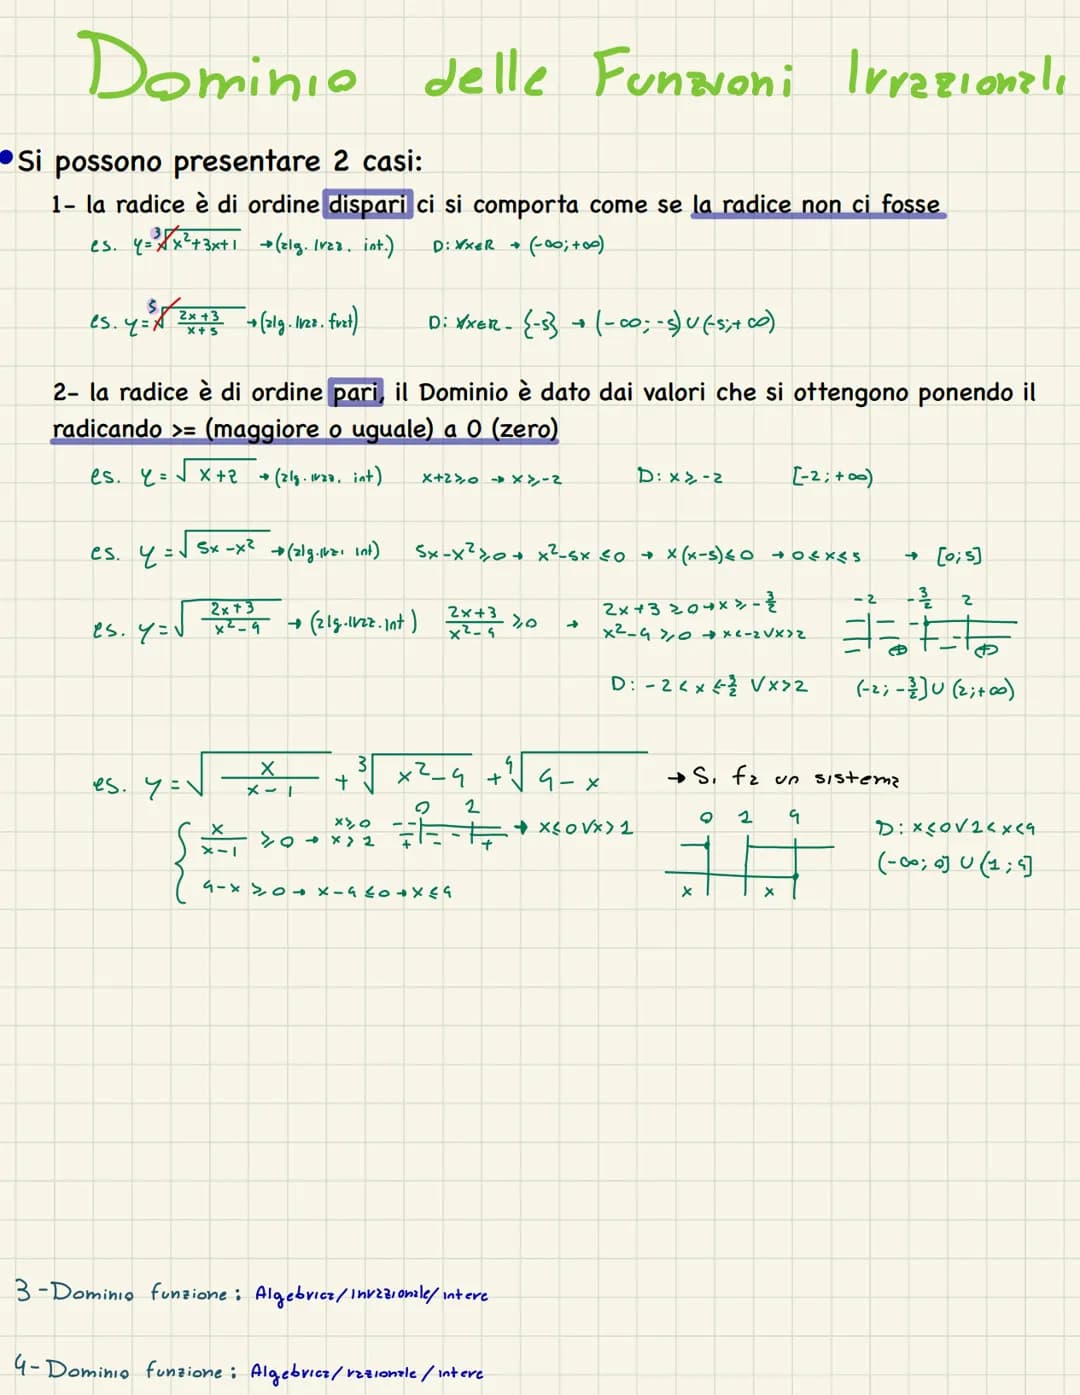 Dominio delle Funzioni Irrazionali
• Si possono presentare 2 casi:
1- la radice è di ordine dispari ci si comporta come se la radice non ci fosse
es. y = ∛(x²+3x+1) → (alg. irraz. int.) D: ∀x∈R → (-∞; +∞)
es. y = ⁵√((2x+3)/(x+5)) → (alg. irraz. frat) D: ∀x∈R - {-5} → (-∞; -5) ∪ (-5; +∞)
2- la radice è di ordine pari, il Dominio è dato dai valori che si ottengono ponendo il
radicando >= (maggiore o uguale) a 0 (zero)
es. y = √(x+2) → (alg. irraz. int) x+2⩾0 → x⩾-2 D: x⩾-2 [-2; +∞)
es. y = √(5x-x²) → (alg. irraz. int) 5x-x²⩾0 → x²-5x⩽0 → x(x-5)⩽0 → 0⩽x⩽5 → [0;5]
es. y = √((2x+3)/(x²-4)) → (alg. irraz. int) (2x+3)/(x²-4) ⩾0 → 2x+3⩾0 → x⩾-3/2 -2 -3/2 2
x²-4⩾0 → x<-2 ∨ x>2
D: -2<x⩽-3/2 ∨ x>2 (-2; -3/2] ∪ (2; +∞)
es. y = √(x/(x-1)) + ∛(x²-4) + ⁴√(4-x) → Si fa un sistema
{ x/(x-1) ⩾0 → x⩾0 x>1 0 1 → x⩽0 ∨ x>1 0 1 4 D: x⩽0 ∨ 1<x<4
4-x⩾0 → x-4⩽0 → x⩽4 x x (-∞; 0] ∪ (1; 4]
3-Dominio funzione: Algebrica/Irrazionale/intera
4-Dominio funzione: Algebrica/razionale/intera